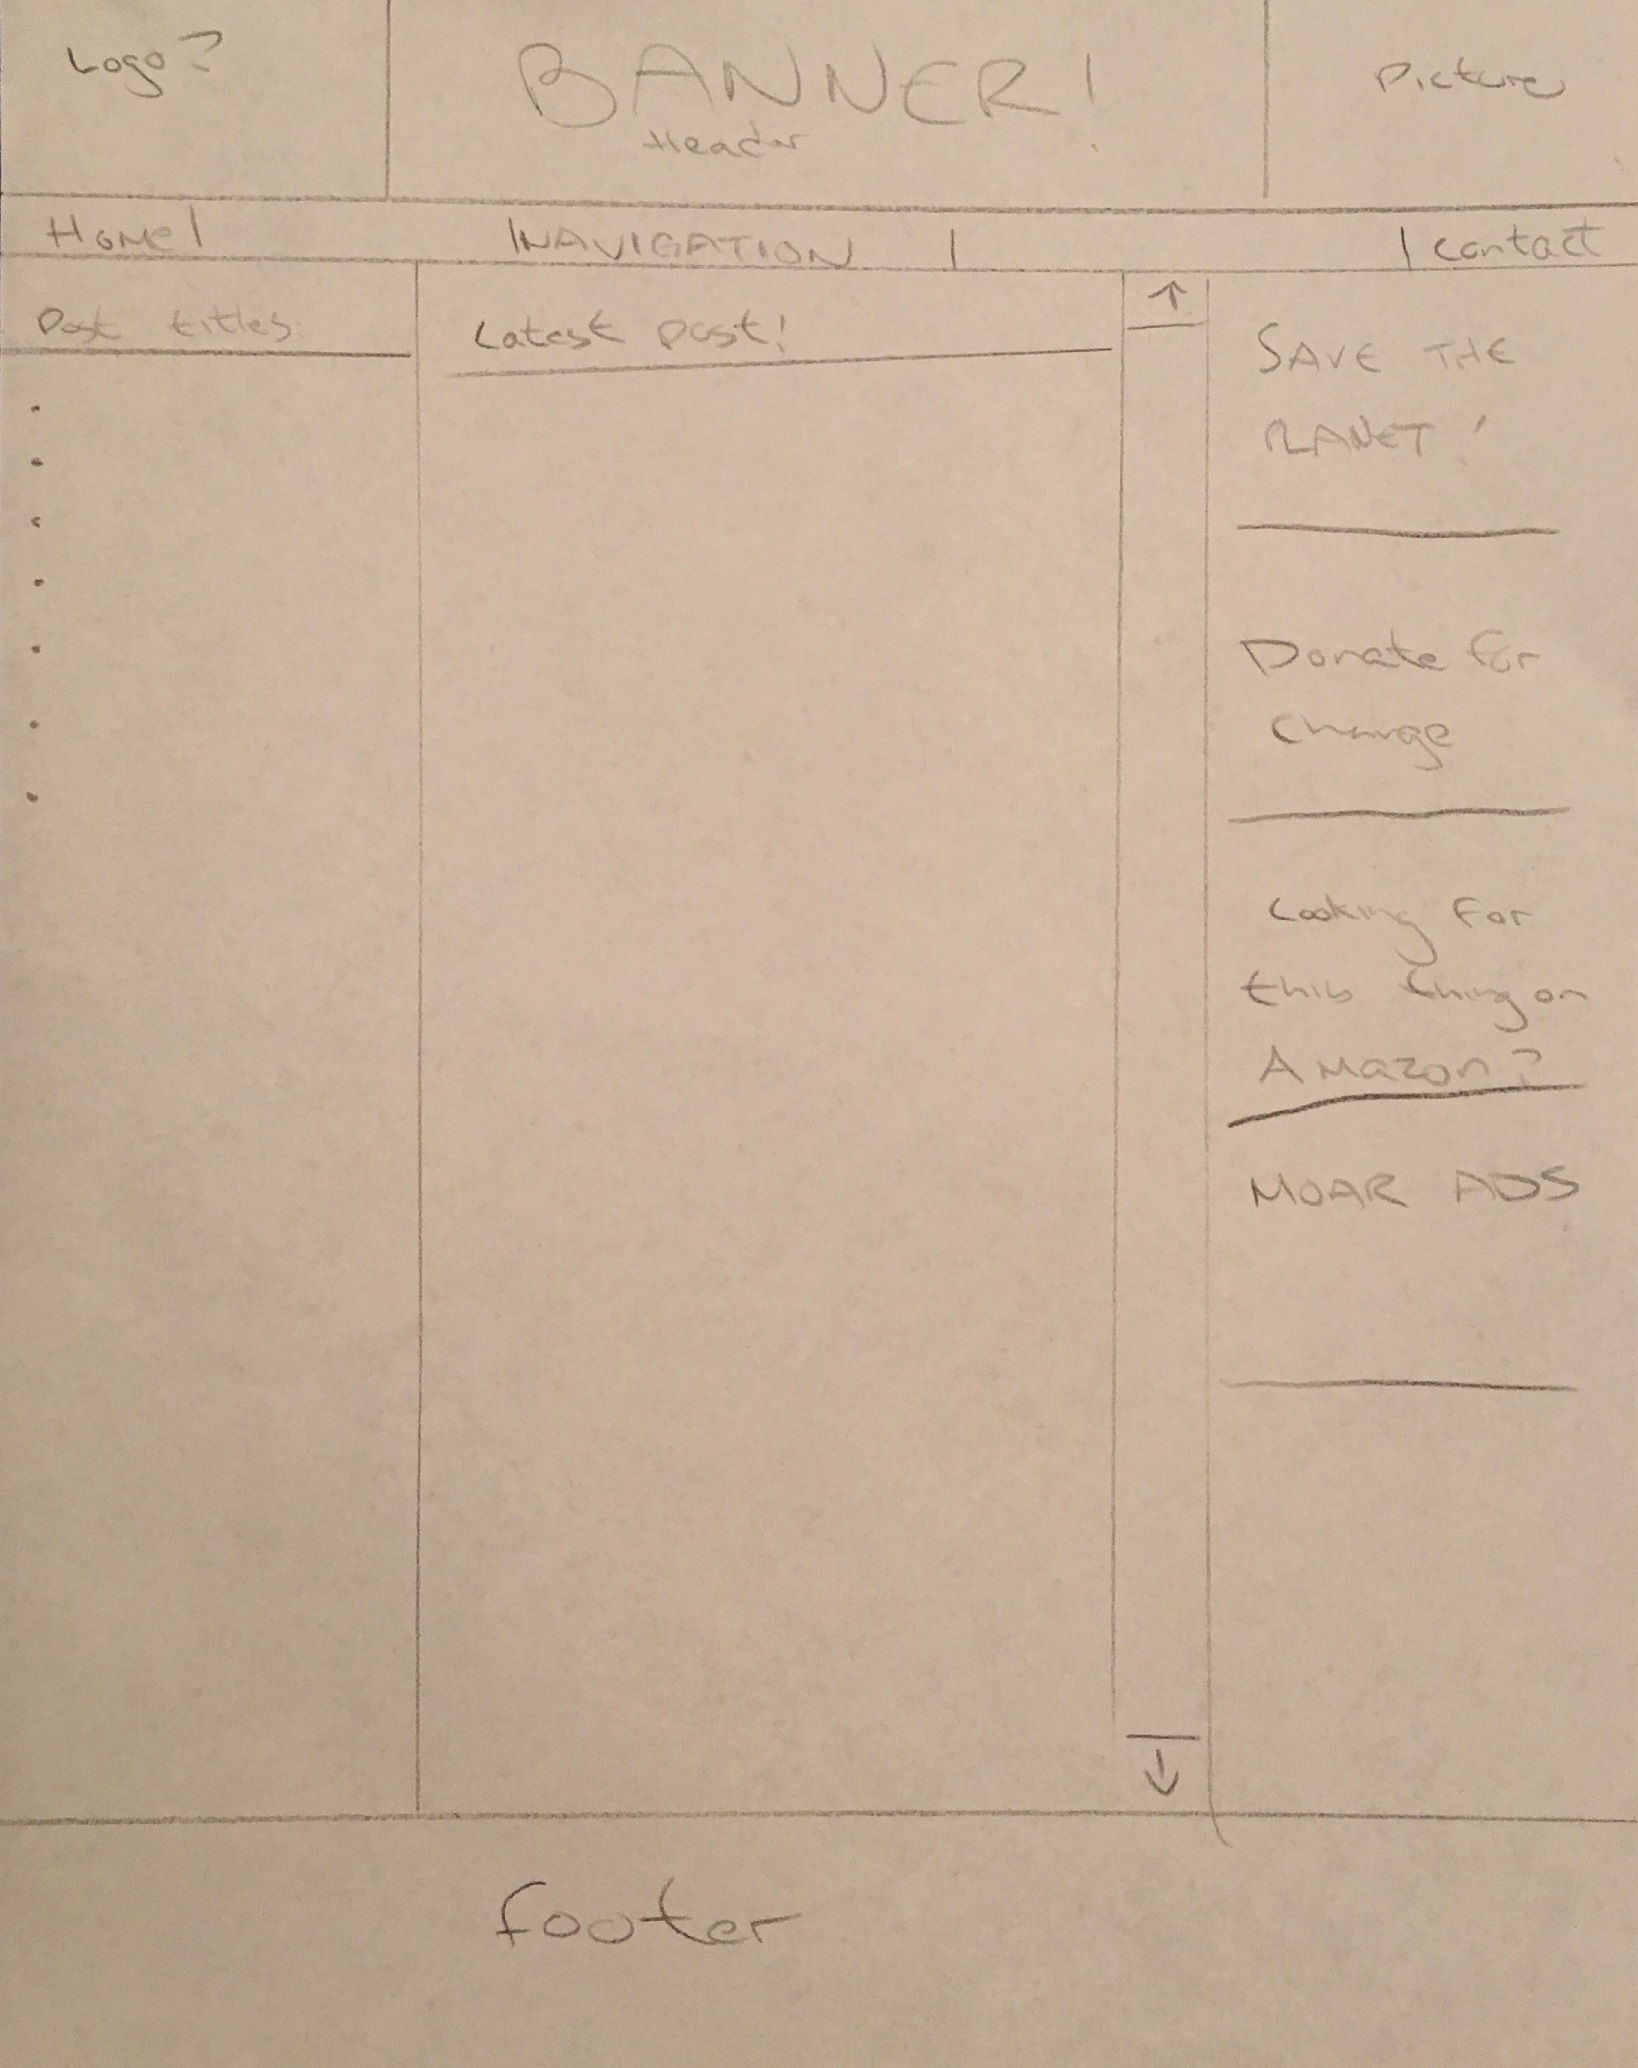 Logo?
BANNER!
Header
Picture
Home | | NAVIGATION | | Contact
Post titles
Latest post!
SAVE THE
PLANET!
Donate for
Change
Looking for
this thing on
Amazon?
MOAR ADS
footer